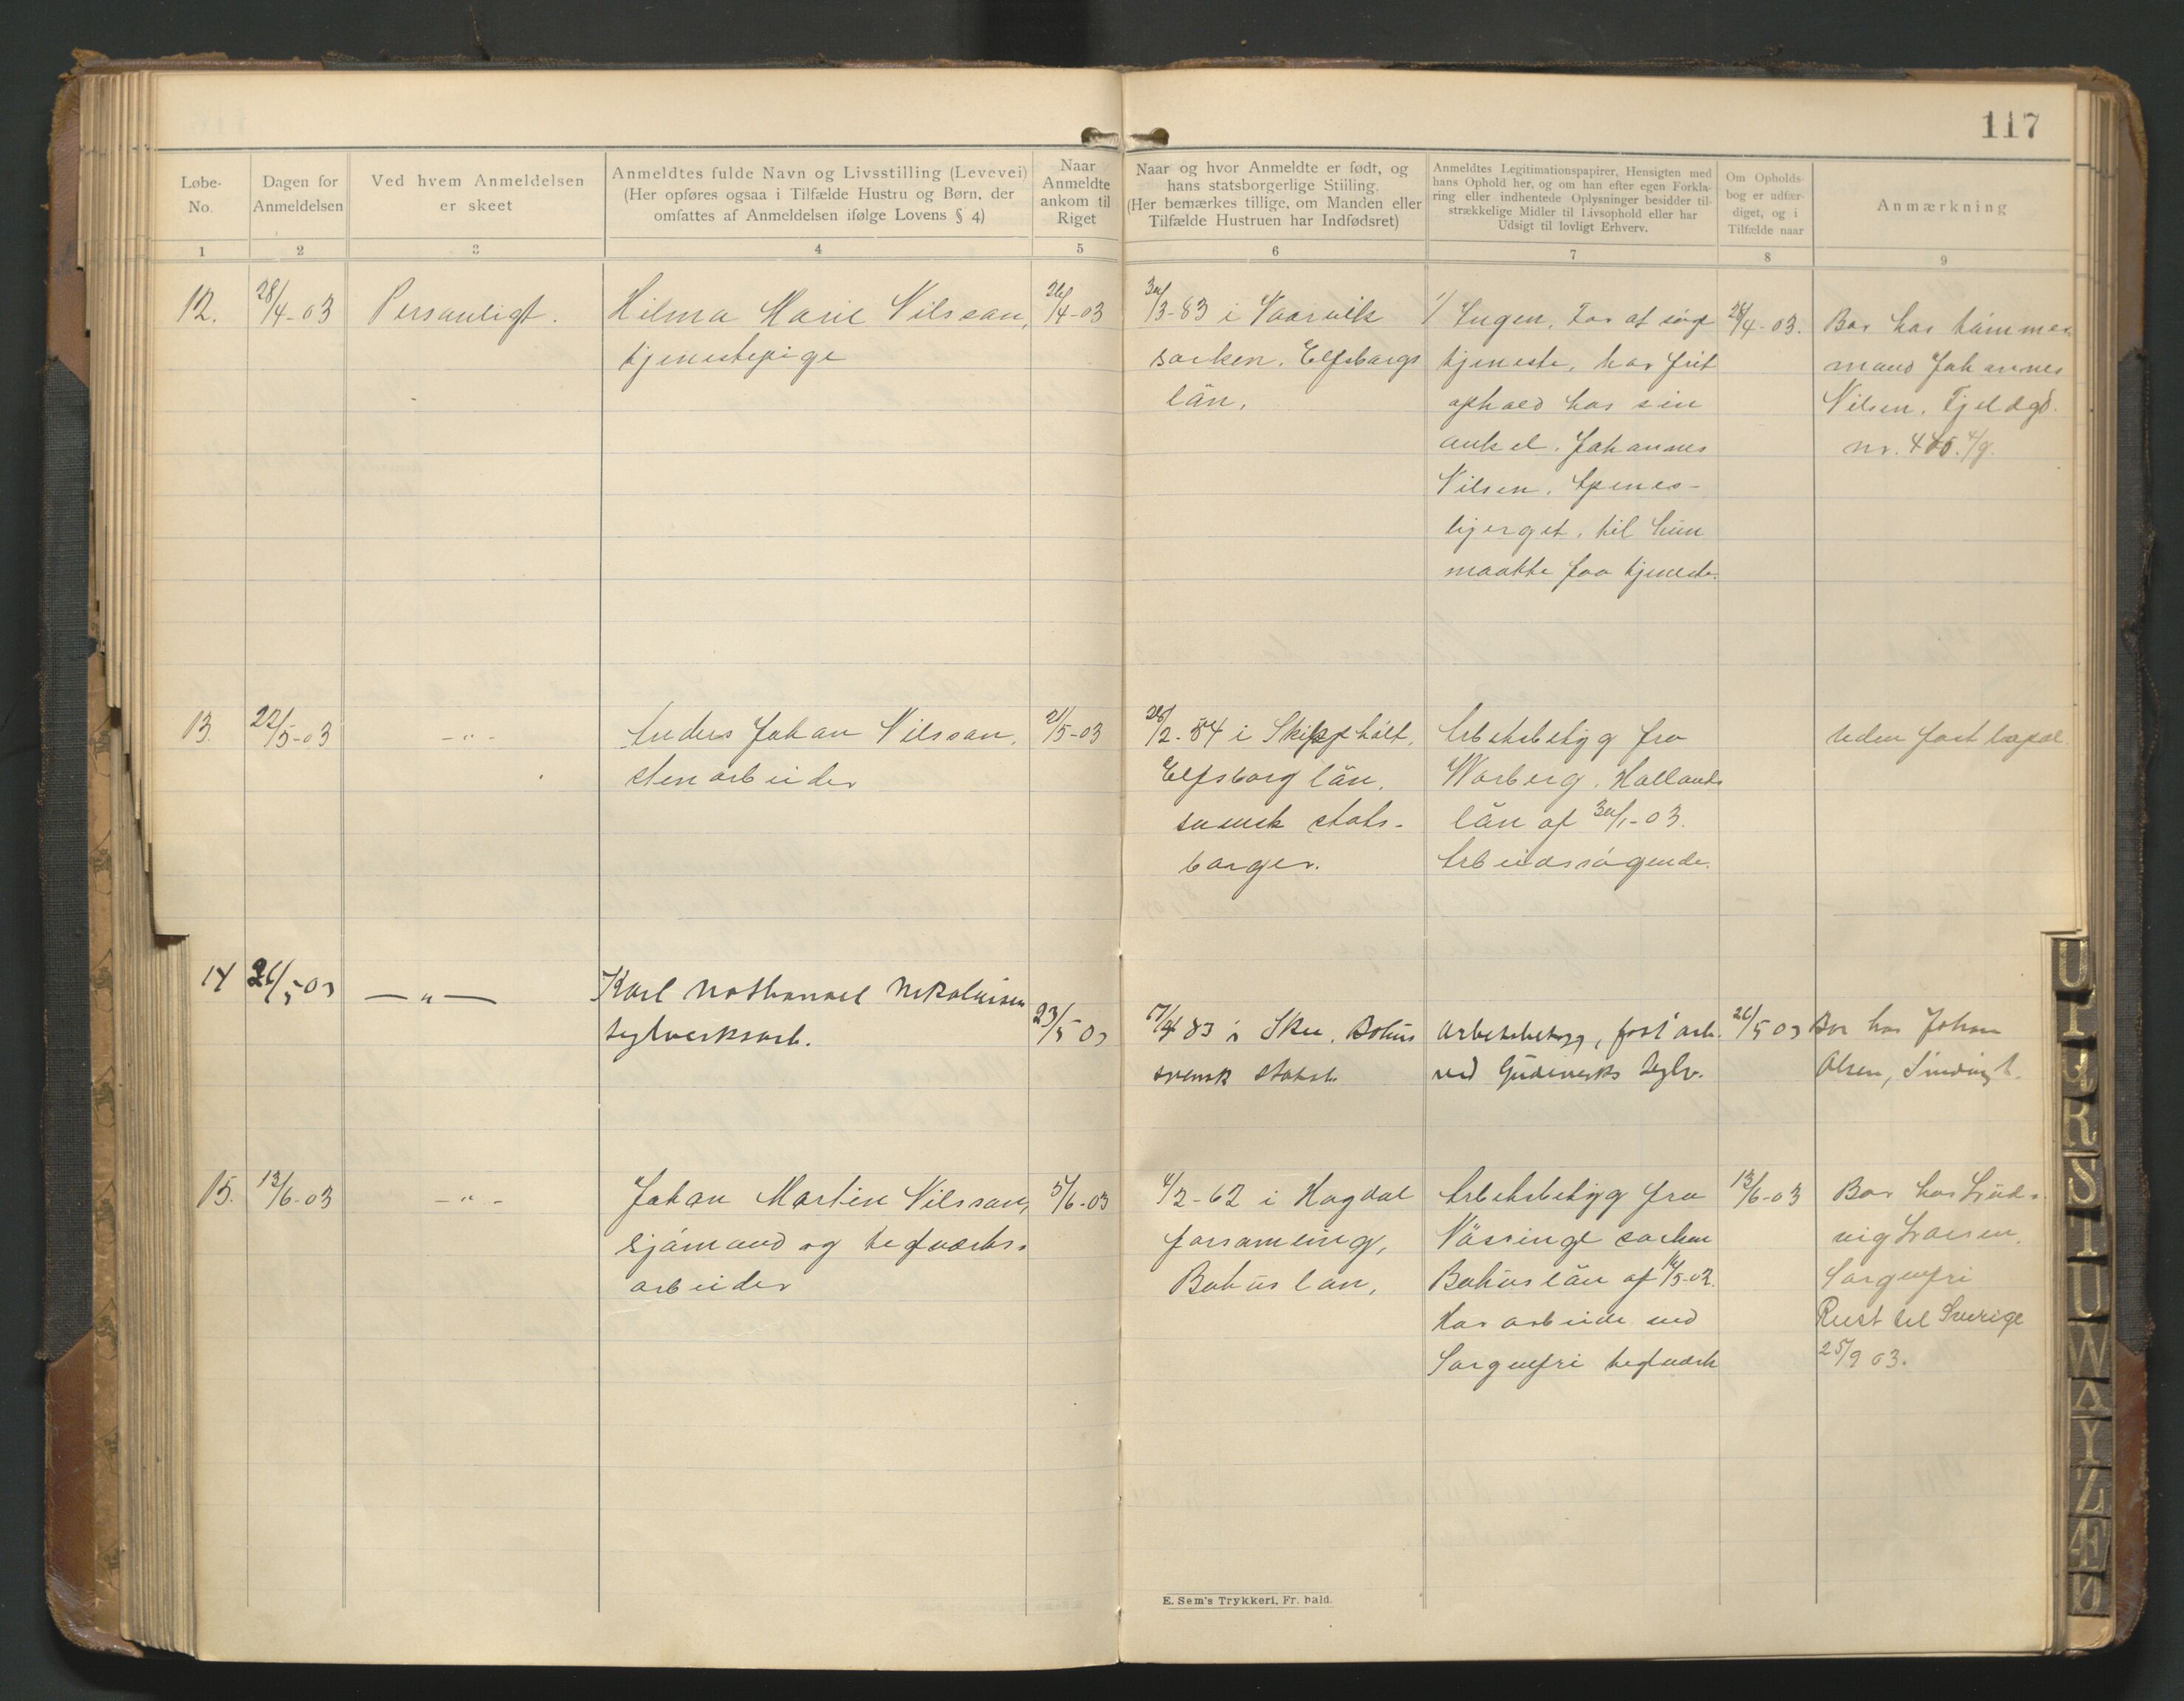 117
Løbe-
No.
Dagen for
Anmeldelsen
Ved hvem Anmeldelsen
er skeet
Anmeldtes fulde Navn og Livsstilling (Levevei)
(Her opføres ogsaa i Tilfælde Hustru og Børn, der
omfattes af Anmeldelsen ifølge Lovens § 4)
Naar
Anmeldte
ankom til
Riget
Naar og hvor Anmeldte er født, og
hans statsborgerlige Stiiling.
(Her bemærkes tillige, om Manden eller
Tilfælde Hustruen har Indfødsret)
Anmeldtes Legitimationspapirer, Hensigten med
hans Ophold her, og om han efter egen Forkla-
ring eller indhentede Oplysninger besidder til-
strækkelige Midler til Livsophold eller har
Udsigt til lovligt Erhverv.
Om Opholds-
bog er udfær-
diget, og i
Tilfælde naar
Anmærkning
1 2 3 4 5 6 7 8 9
12.
28/4-03
Personligt.
Hilma Marie Nilsson,
tjenestepige
26/4-03
30/3-83 i Vaarvik
socken. Elfsborgs
län.
Ingen. For at søge
tjeneste, har frit
ophold hos sin
onkel. Johannes
Nilsen,
bjerget, til hun
maatte faa tjeneste.
28/4-03.
Bor hos tømmer
mand Johannes
Nilsen, Fjeldgd.
nr.
13.
22/5-03
- " -
Anders Johan Nilsson,
stenarbeider
21/5-03
28/2-84 i Skipphult,
Elfsborg län.
svensk stats-
borger.
Arbetsbetyg fra
Warberg, Hallands
län af 30/1-03.
Arbeidssøgende.
Uden fast bopæl.
14
26/5 03
— " —
Karl Nathanael Nikolaisen
teglverksarb.
23/5 03
17/4 83 i Skee, Bohus
svensk statsb.
Arbetsbetyg, fast arb.
ved Gudeviks teglv.
26/5 03
Bor hos Johan
Olsen,
15.
13/6-03
- " -
Johan Martin Nilsson,
sjømand og teglværks-
arbeider
5/6-03
4/2-62 i Hogdal
forsamling,
Bohus län,
Arbetsbetyg fra
Näsinge socken
Bohus län af 16/5-02.
Har arbeide ved
Sorgenfri teglværk
13/6-03
Bor hos Lud-
vig Larsen,
Sorgenfri
Reist til Sverige
25/9 03.
E. Sem's Trykkeri, Fr. hald.
U
T
R
S
T
U
W
A
Y
Z
Æ
Ø